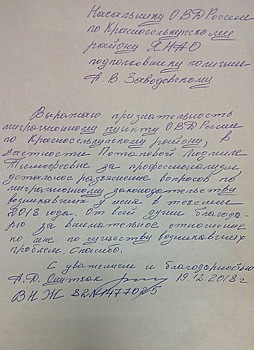 Начальнику ОВД России
по Красноселькупскому
району ЯНАО
подполковнику полиции
А. В. Заводовскому
Выражаю признательность
миграционному пункту ОВД России
по Красноселькупскому району, в
частности Потаповой Людмиле
Тимофеевне за профессионализм,
детальное разъяснение вопросов по
миграционному законодательству
возникавших у меня в течении
2018 года. От всей души благода-
рю за внимательное отношение
ко мне по существу возникавших
проблем. Спасибо.
С уважением и благодарностью
А.Ф. 19.12.2018 г
ВНЖ 82№1477025